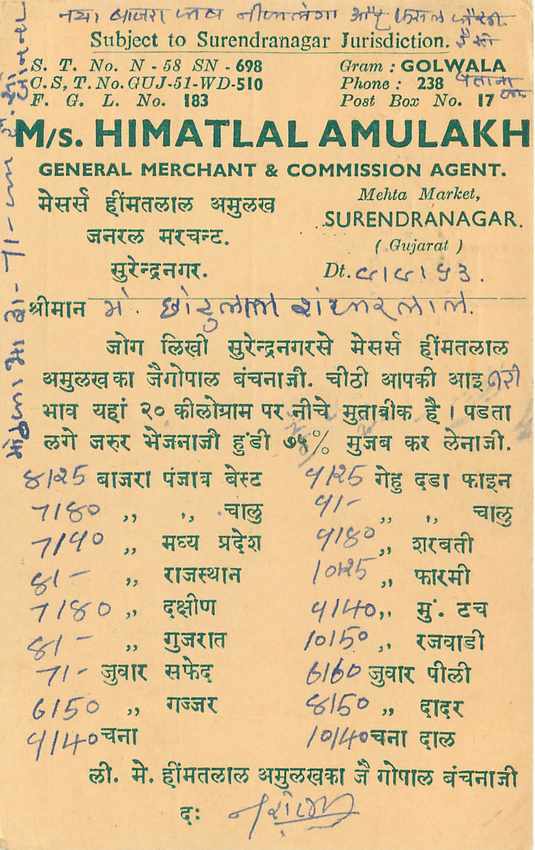 नया बाजरा
Subject to Surendranagar Jurisdiction.
S. T. No. N - 58 SN - 698 Gram : GOLWALA
C. S, T. No. GUJ-51-WD-510 Phone : 238
F. G. L. No. 183 Post Box No. 17
M/s. HIMATLAL AMULAKH
GENERAL MERCHANT & COMMISSION AGENT.
मेसर्स हींमतलाल अमुलख Mehta Market,
जनरल मरचन्ट. SURENDRANAGAR.
सुरेन्द्रनगर. ( Gujarat )
Dt.
श्रीमान
जोग लिखी सुरेन्द्रनगरसे मेसर्स हींमतलाल
अमुलख का जैगोपाल बंचनाजी. चीठी आपकी आइ
भाव यहां २० कीलोग्राम पर नीचे मुताबीक है । पडता
लगे जरुर भेजनाजी हुंडी ७५% मुजब कर लेनाजी.
8/25 बाजरा पंजाब बेस्ट 9/25 गेहु दडा फाइन
7/80 ,, ,, चालु 9/- ,, ,, चालु
7/90 ,, मध्य प्रदेश 9/80 ,, शरबती
8/- ,, राजस्थान 10/25 ,, फारमी
7/80 ,, दक्षीण 9/40 ,, मुं. टच
8/- ,, गुजरात 10/50 ,, रजवाडी
7/- जुवार सफेद 6/60 जुवार पीली
6/50 ,, गज्जर 8/50 ,, दादर
9/40 चना 10/40 चना दाल
ली. मे. हींमतलाल अमुलखका जै गोपाल बंचनाजी
दः